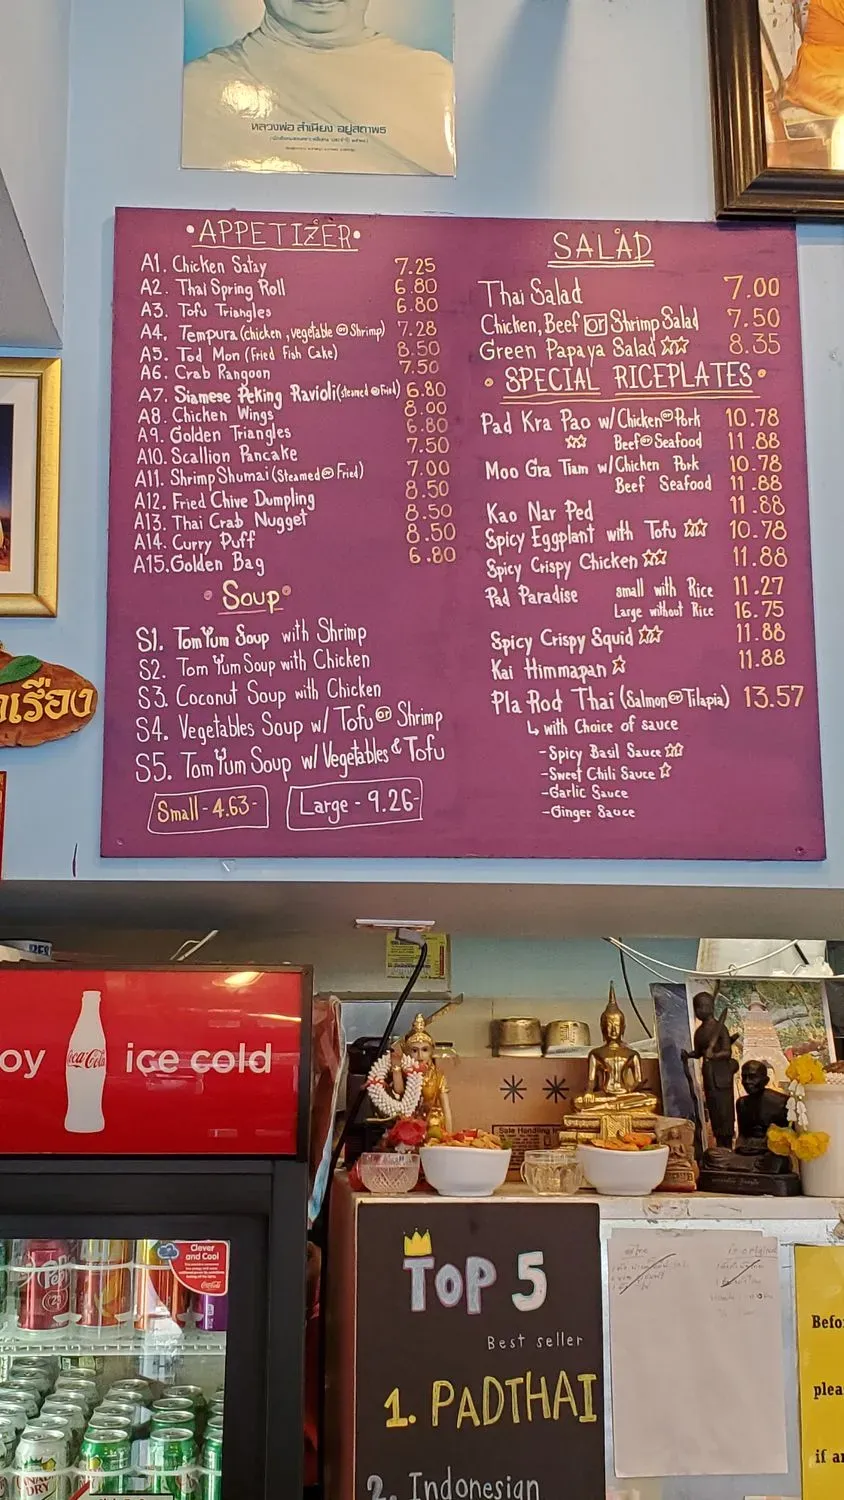 หลวงพ่อ สำเนียง อยู่สถาพร
•APPETIZER•
A1. Chicken Satay 7.25
A2. Thai Spring Roll 6.80
A3. Tofu Triangles 6.80
A4. Tempura (chicken, vegetable or Shrimp) 7.28
A5. Tod Mon (Fried Fish Cake) 8.50
A6. Crab Rangoon 7.50
A7. Siamese Peking Ravioli (steamed or Fried) 6.80
A8. Chicken Wings 8.00
A9. Golden Triangles 6.80
A10. Scallion Pancake 7.50
A11. Shrimp Shumai (Steamed or Fried) 7.00
A12. Fried Chive Dumpling 8.50
A13. Thai Crab Nugget 8.50
A14. Curry Puff 8.50
A15. Golden Bag 6.80
• Soup •
S1. Tom Yum Soup with Shrimp
S2. Tom Yum Soup with Chicken
S3. Coconut Soup with Chicken
S4. Vegetables Soup w/ Tofu or Shrimp
S5. Tom Yum Soup w/ Vegetables & Tofu
Small - 4.63-
Large - 9.26-
SALAD
Thai Salad 7.00
Chicken, Beef or Shrimp Salad 7.50
Green Papaya Salad ☆☆ 8.35
• SPECIAL RICEPLATES •
Pad Kra Pao w/ Chicken or Pork 10.78
☆☆ Beef or Seafood 11.88
Moo Gra Tiam w/ Chicken Pork 10.78
Beef Seafood 11.88
Kao Nar Ped 11.88
Spicy Eggplant with Tofu ☆☆ 10.78
Spicy Crispy Chicken ☆☆ 11.88
Pad Paradise small with Rice 11.27
Large without Rice 16.75
Spicy Crispy Squid ☆☆ 11.88
Kai Himmapan ☆ 11.88
Pla Rod Thai (Salmon or Tilapia) 13.57
↳ with Choice of sauce
-Spicy Basil Sauce ☆☆
-Sweet Chili Sauce ☆
-Garlic Sauce
-Ginger Sauce
เรือง
oy Coca-Cola ice cold
Clever
and Cool
Coca-Cola
CANADA
DRY
TOP 5
Best seller
1. PADTHAI
2. Indonesian
Befo
plea
if a